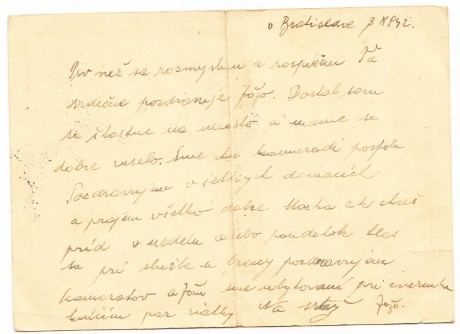 v Bratislave 3 X 942.
Prv než sa rozmyslím a rozpíšem Ťa
srdečne pozdravuje Jožo. Dostal som
sa šťastne na miesto a máme sa
dobre veselo. Sme tu kamaradi pospolu
Pozdravujem všetkých domacich
a prajem všetko dobre Mocha ak chceš
príd v nedelu alebo pondelok hlas
sa pri službe u brany pozdravujem
kamaratov a sme ubytovaní pri
par riadky Na Jožo.